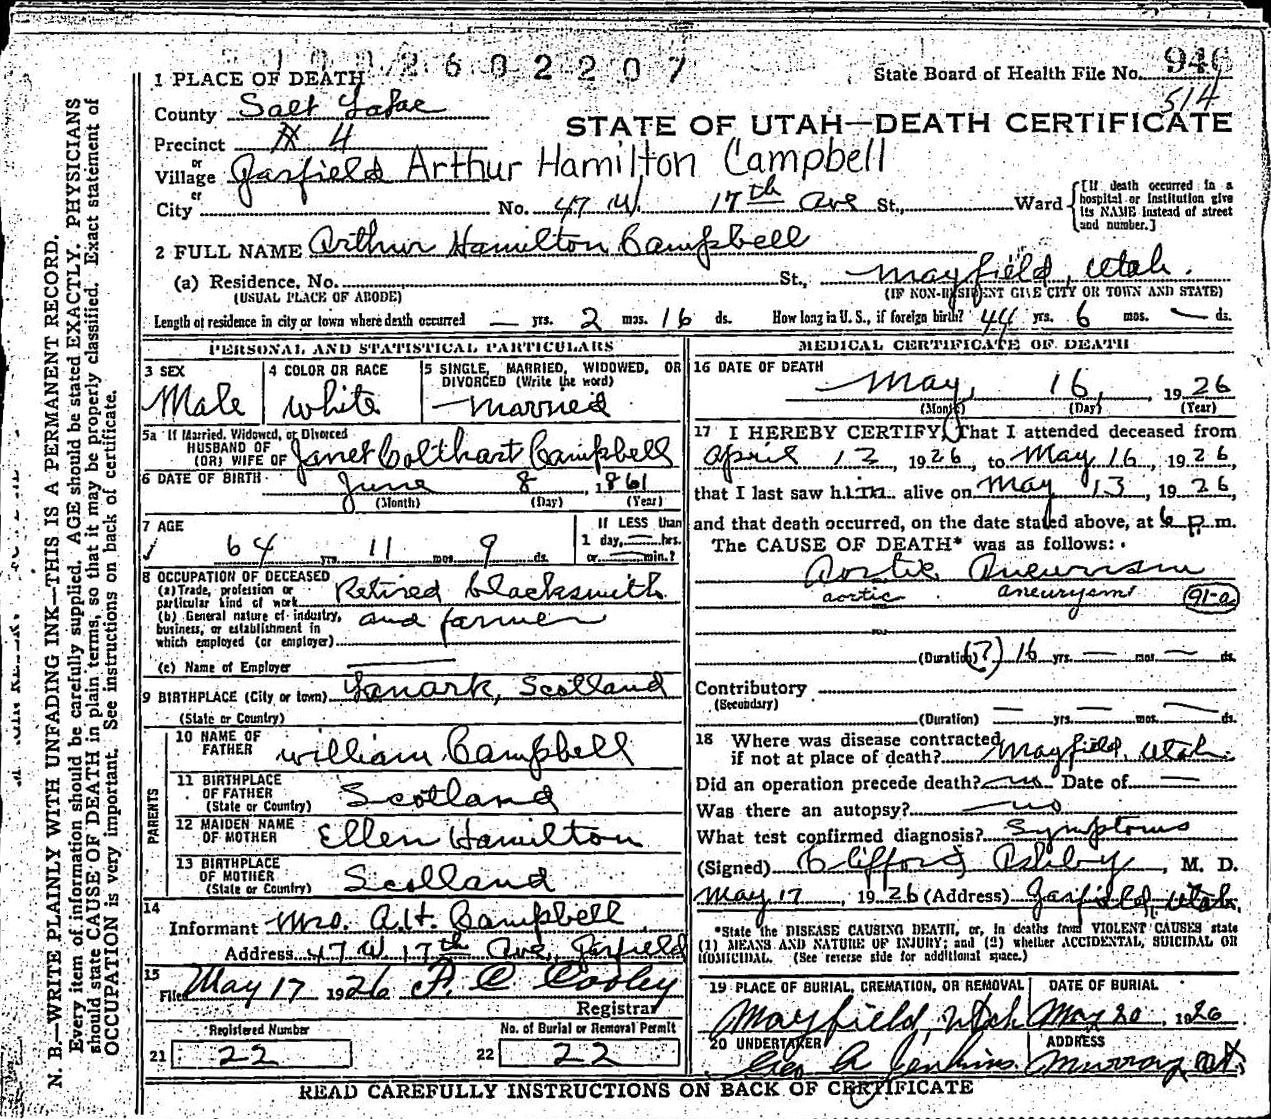 1002602207
State Board of Health File No. 946
514
1 PLACE OF DEATH
County Salt Lake
STATE OF UTAH—DEATH CERTIFICATE
Precinct # 4
or
Village Garfield Arthur Hamilton Campbell
or
City No. 47 W. 17th Ave St., Ward [If death occurred in a hospital or institution give its NAME instead of street and number.]
2 FULL NAME Arthur Hamilton Campbell
(a) Residence, No. St., Mayfield, Utah.
(USUAL PLACE OF ABODE) (IF NON-RESIDENT GIVE CITY OR TOWN AND STATE)
Length of residence in city or town where death occurred — yrs. 2 mos. 16 ds. How long in U. S., if foreign birth? 44 yrs. 6 mos. — ds.
PERSONAL AND STATISTICAL PARTICULARS
3 SEX
Male
4 COLOR OR RACE
White
5 SINGLE, MARRIED, WIDOWED, OR DIVORCED (Write the word)
Married
5a If Married, Widowed, or Divorced
HUSBAND OF
(OR) WIFE OF Janet Colthart Campbell
6 DATE OF BIRTH June 8, 1861
(Month) (Day) (Year)
7 AGE
64 yrs. 11 mos. 9 ds.
If LESS than
1 day, — hrs.
or — min.?
8 OCCUPATION OF DECEASED
(a) Trade, profession or particular kind of work Retired blacksmith
(b) General nature of industry, business, or establishment in which employed (or employer) and farmer
(c) Name of Employer
9 BIRTHPLACE (City or town) Lanark, Scotland
(State or Country)
PARENTS
10 NAME OF FATHER William Campbell
11 BIRTHPLACE OF FATHER (State or Country) Scotland
12 MAIDEN NAME OF MOTHER Ellen Hamilton
13 BIRTHPLACE OF MOTHER (State or Country) Scotland
14
Informant Mrs. A.H. Campbell
Address 47 W. 17th Ave, Garfield
15
Filed May 17 1926 F. C. Cooley
Registrar
Registered Number
21 22
No. of Burial or Removal Permit
22 22
MEDICAL CERTIFICATE OF DEATH
16 DATE OF DEATH
May, 16, 1926
(Month) (Day) (Year)
17 I HEREBY CERTIFY, That I attended deceased from
April 13, 1926, to May 16, 1926,
that I last saw him alive on May 13, 1926,
and that death occurred, on the date stated above, at 6 P. m.
The CAUSE OF DEATH* was as follows:
Aortic Aneurism
aortic aneurysm 91-a
(Duration) (?) 16 yrs. — mos. — ds.
Contributory
(Secondary)
(Duration) — yrs. — mos. — ds.
18 Where was disease contracted
if not at place of death? Mayfield, Utah.
Did an operation precede death? no Date of —
Was there an autopsy? no
What test confirmed diagnosis? Symptoms
(Signed) Clifford Ashby, M. D.
May 17, 1926 (Address) Garfield, Utah.
*State the DISEASE CAUSING DEATH, or, in deaths from VIOLENT CAUSES state
(1) MEANS AND NATURE OF INJURY; and (2) whether ACCIDENTAL, SUICIDAL OR
HOMICIDAL. (See reverse side for additional space.)
19 PLACE OF BURIAL, CREMATION, OR REMOVAL
Mayfield, Utah
DATE OF BURIAL
May 20, 1926
20 UNDERTAKER
Geo A Jenkins
ADDRESS
Murray Ut.
READ CAREFULLY INSTRUCTIONS ON BACK OF CERTIFICATE
N. B.—WRITE PLAINLY WITH UNFADING INK—THIS IS A PERMANENT RECORD.
Every item of information should be carefully supplied. AGE should be stated EXACTLY. PHYSICIANS
should state CAUSE OF DEATH in plain terms, so that it may be properly classified. Exact statement of
OCCUPATION is very important. See instructions on back of certificate.